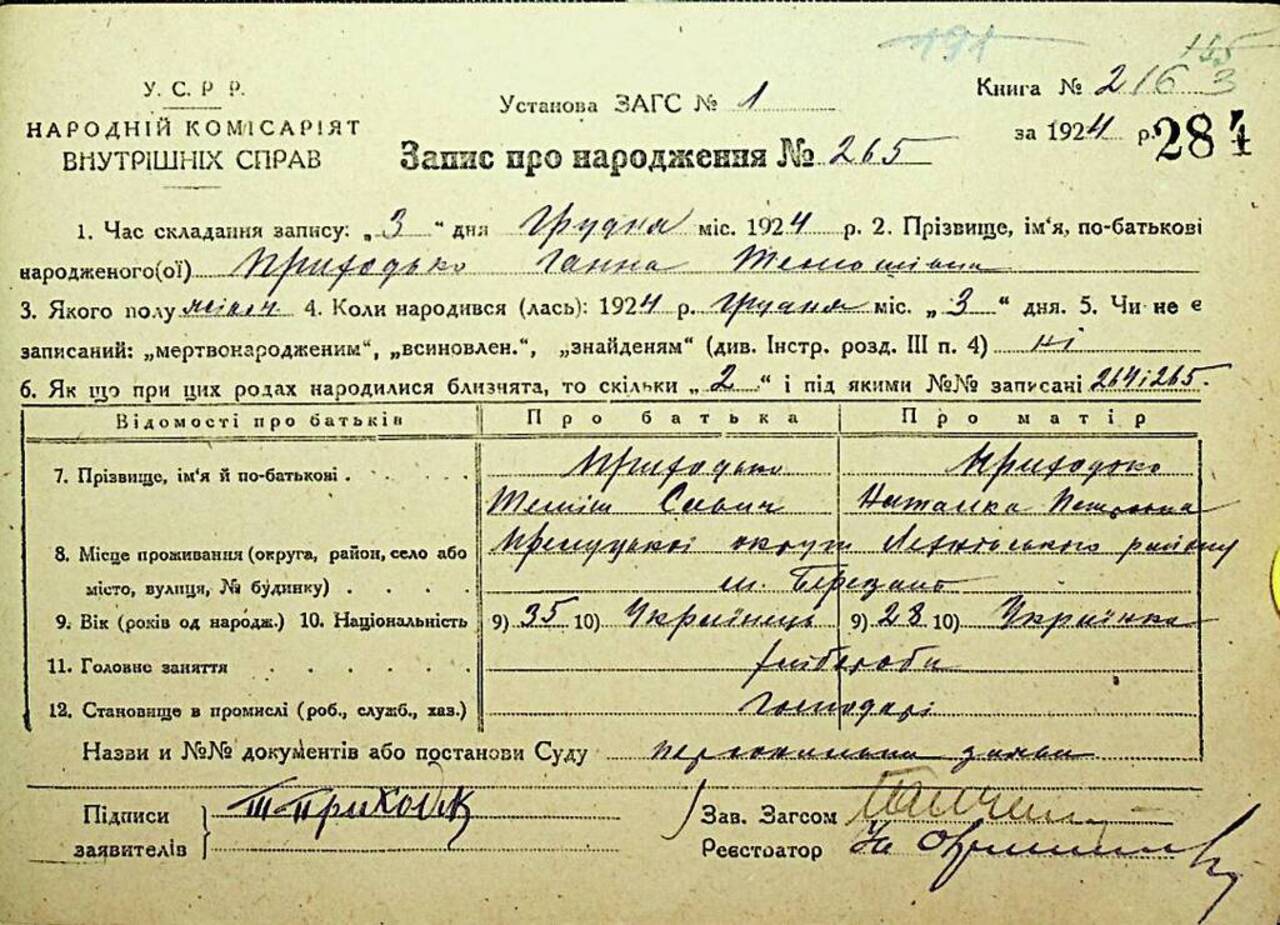 191
155
У. С. Р Р.
НАРОДНІЙ КОМІСАРІЯТ
ВНУТРІШНІХ СПРАВ
Установа ЗАГС № 1
Книга № 216 3
за 1924 р. 284
Запис про народження № 265
1. Час складання запису: „3“ дня Грудня міс. 1924 р. 2. Прізвище, ім‘я, по-батькові
народженого(ої) Приходько Ганна
3. Якого полу жіноч. 4. Коли народився (лась): 1924 р. Грудня міс. „3“ дня. 5. Чи не є
записаний: „мертвонародженим“, „всиновлен.“, „знайденям“ (див. Інстр. розд. III п. 4) ні
6. Як що при цих родах народилися близнята, то скільки „2“ і під якими №№ записані 264 і 265.
Відомості про батьків Про батька Про матір
7. Прізвище, ім‘я й по-батькові . . . . Приходько Приходько
Савич Наталка Петровна
8. Місце проживання (округа, район, село або Прилуцької округи району
місто, вулиця, № будинку) . . . . м. Березань
9. Вік (років од народж.) 10. Національність 9) 35 10) Українець 9) 28 10) Українка
11. Головне заняття . . . . . . хлібороби
12. Становище в промислі (роб., служб., хаз.) Господарі
Назви и №№ документів або постанови Суду персональна заява
Підписи Т Приходьк Зав. Загсом
заявителів Реєстратор